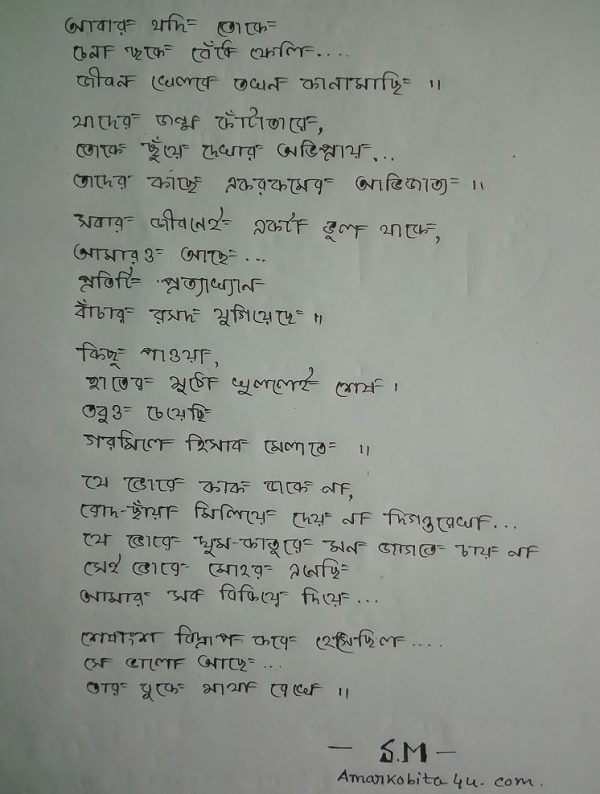 আবার যদি তোকে
চেনা ছকে বেঁধে ফেলি....
জীবন খেলবে তখন কানামাছি ॥
যাদের জন্ম কাঁটাতারে,
তোকে ছুঁয়ে দেখার অভিপ্রায়...
তাদের কাছে একরকমের আভিজাত্য ॥
সবার জীবনেই একটা ভুল থাকে,
আমারও আছে...
প্রতিটি প্রত্যাখ্যান
বাঁচার রসদ যুগিয়েছে ॥
কিছু পাওয়া,
হাতের মুঠো খুললেই শেষ ।
তবুও চেয়েছি
গরমিলে হিসাব মেলাতে ॥
যে ভোরে কাক ডাকে না,
রোদ-ছাঁয়া মিলিয়ে দেয় না দিগন্তরেখা...
যে ভোরে ঘুম-কাতুরে মন জাগতে চায় না
সেই ভোরে মোহর এনেছি
আমার সব বিকিয়ে দিয়ে...
শেষাংশ বিদ্রূপ করে হেসেছিল....
সে ভালো আছে...
তার বুকে মাথা রেখে ॥
— S.M —
Amarkobita4u.com.